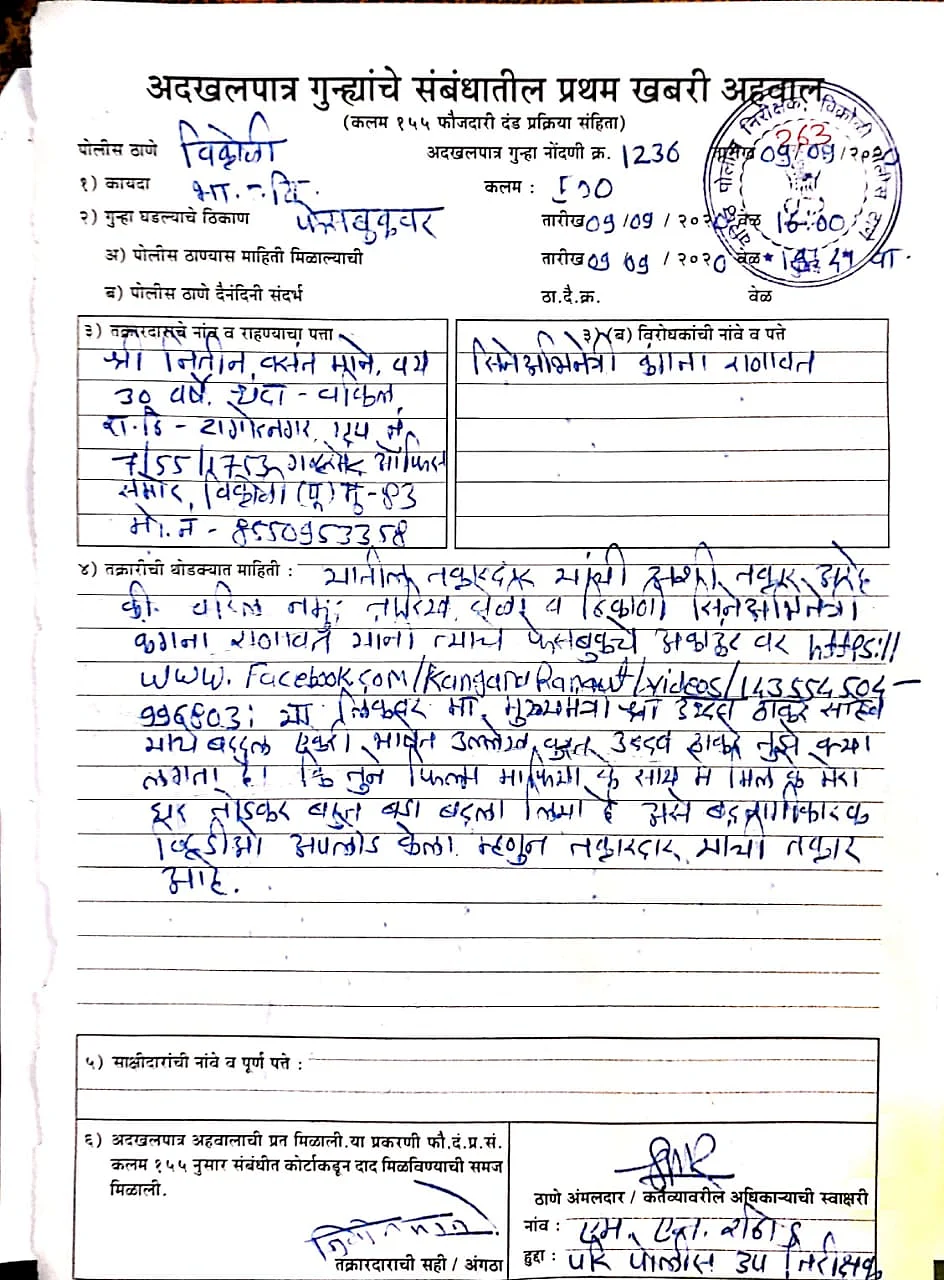 अदखलपात्र गुन्ह्यांचे संबंधातील प्रथम खबरी अहवाल
(कलम १५५ फौजदारी दंड प्रक्रिया संहिता)
पोलीस ठाणे विक्रोळी अदखलपात्र गुन्हा नोंदणी क्र. 1236 तारीख 09/09/२०२०
263
१) कायदा भा.द.वि. कलम : ५००
२) गुन्हा घडल्याचे ठिकाण फेसबुकवर तारीख 09/09/२०२० वेळ 16:00
अ) पोलीस ठाण्यास माहिती मिळाल्याची तारीख 09 09/२०२0 वेळ वा.
ब) पोलीस ठाणे दैनंदिनी संदर्भ ठा.दै.क्र. वेळ
३) तक्रारदाराचे नांव व राहण्याचा पत्ता
श्री नितीन वसंत माने, वय
30 वर्षे, धंदा - वकिल,
रा.ठि - टागोरनगर,
7/55/1753, ऑफिस
समोर, विक्रोळी (पू) मु-83
मो.नं - 8550953358
३) (ब) विरोधकांची नांवे व पत्ते
सिनेअभिनेत्री कंगना राणावत
४) तक्रारीची थोडक्यात माहिती : यातील तक्रारदार यांची अशी तक्रार आहे
की, वरिल नमुद तारिख वेळी व ठिकाणी सिनेअभिनेत्री
कंगना राणावत यांनी त्यांचे फेसबुकचे अकाऊंट वर https://
www.Facebook.com/KanganaRanaut/videos/143554504-
996803: या लिंकवर मा. मुख्यमंत्री श्री उध्दव ठाकरे साहेब
यांचे बद्दल एकेरी भाषेत उल्लेख करत उद्दव ठाकरे तुझे क्या
लगता है। कि तुने फिल्म माफिया के साथ मे मिल के मेरा
घर तोडकर बहुत बडा बदला लिया है असे बदनामीकारक
व्हिडीओ अपलोड केला म्हणुन तक्रारदार यांची तक्रार
आहे.
५) साक्षीदारांची नांवे व पूर्ण पत्ते :
६) अदखलपात्र अहवालाची प्रत मिळाली.या प्रकरणी फौ.दं.प्र.सं.
कलम १५५ नुसार संबंधीत कोर्टाकडून दाद मिळविण्याची समज
मिळाली.
तक्रारदाराची सही / अंगठा
ठाणे अंमलदार / कर्तव्यावरीले अधिकाऱ्याची स्वाक्षरी
नांव : एम. एन. राठोड
हुद्दा : परि पोलीस उप निरीक्षक